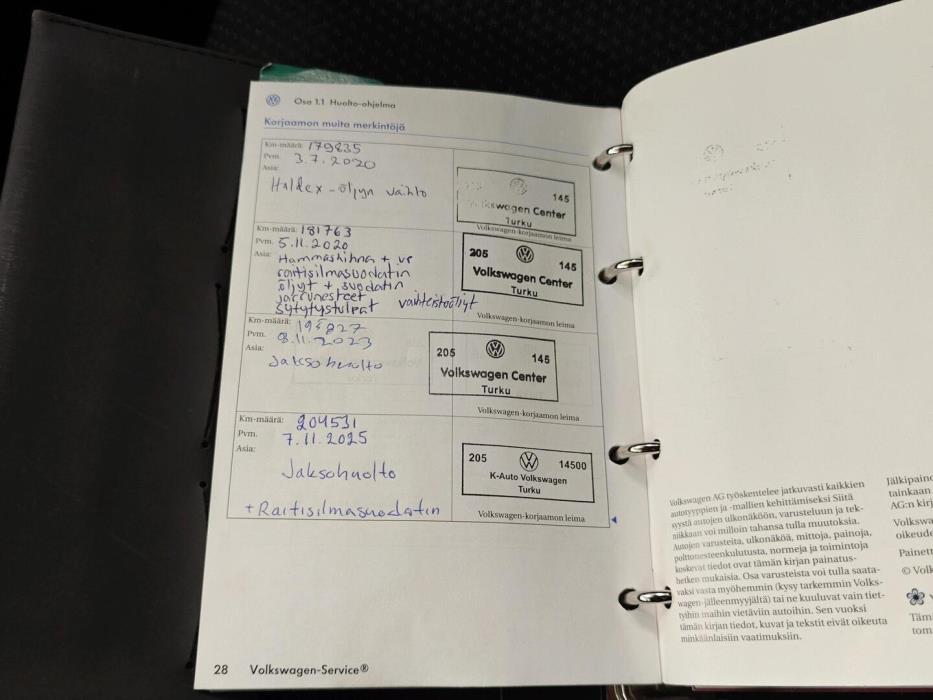 Osa 1.1 Huolto-ohjelma
Korjaamon muita merkintöjä
Km-määrä: 179835
Pvm. 3.7.2020
Asia:
Haldex-öljyn vaihto
145
Volkswagen Center
Turku
Volkswagen-korjaamon leima
Km-määrä: 181763
Pvm. 5.11.2020
Asia: Hammashihna + vp
raitisilmasuodatin
öljyt + suodatin
jarrunesteet
sytytystulpat vaihteistoöljyt
205 145
Volkswagen Center
Turku
Volkswagen-korjaamon leima
Km-määrä: 195827
Pvm. 8.11.2023
Asia:
Jaksohuolto
205 145
Volkswagen Center
Turku
Volkswagen-korjaamon leima
Km-määrä: 204531
Pvm. 7.11.2025
Asia:
Jaksohuolto
+ Raitisilmasuodatin
205 14500
K-Auto Volkswagen
Turku
Volkswagen-korjaamon leima
28 Volkswagen-Service®
Volkswagen AG työskentelee jatkuvasti kaikkien
autotyyppien ja -mallien kehittämiseksi Siitä
syystä autojen ulkonäköön, varusteluun ja tek-
niikkaan voi milloin tahansa tulla muutoksia.
Autojen varusteita, ulkonäköä, mittoja, painoja,
polttonesteenkulutusta, normeja ja toimintoja
koskevat tiedot ovat tämän kirjan painatus-
hetken mukaisia. Osa varusteista voi tulla saata-
vaksi vasta myöhemmin (kysy tarkemmin Volks-
wagen-jälleenmyyjältä) tai ne kuuluvat vain tiet-
tyihin maihin vietäviin autoihin. Sen vuoksi
tämän kirjan tiedot, kuvat ja tekstit eivät oikeuta
minkäänlaisiin vaatimuksiin.
Jälkipaino
tainkaan
AG:n kirj
Volkswa
oikeude
Painett
© Volk
Täm
tom